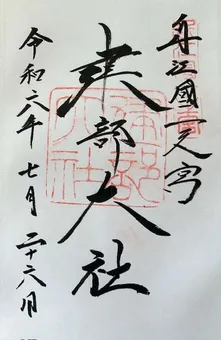 近江國一之宮
建部大社
令和六年七月二十六日